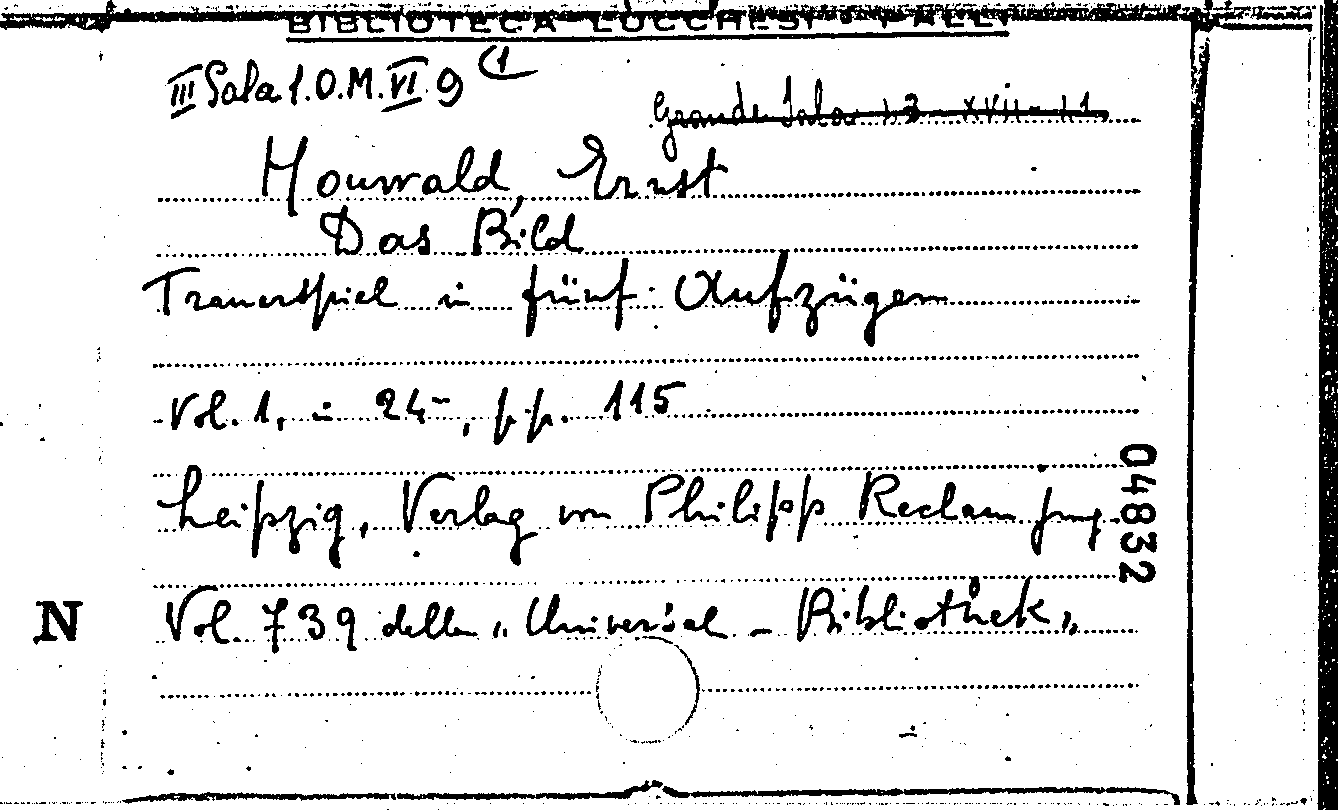 BIBLIOTECA LUCCHESI - PALLI
III Sala 1.O.M.VI.9 (1
Grande Sala 13-XVII-11
Houwald, Ernst
Das Bild
Trauerspiel in fünf Aufzügen
Vol. 1, in 24-, pp. 115
Leipzig, Verlag von Philipp Reclam jun.
04832
N
Vol. 739 della "Universal-Bibliothek"